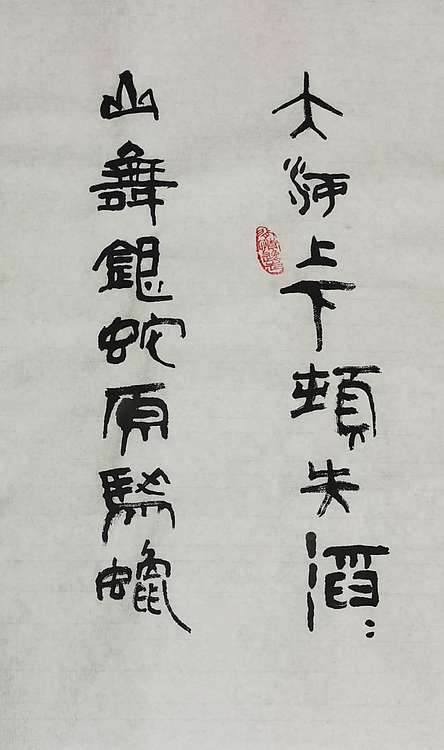 大河上下頓失滔:
山舞銀蛇原馳蠟